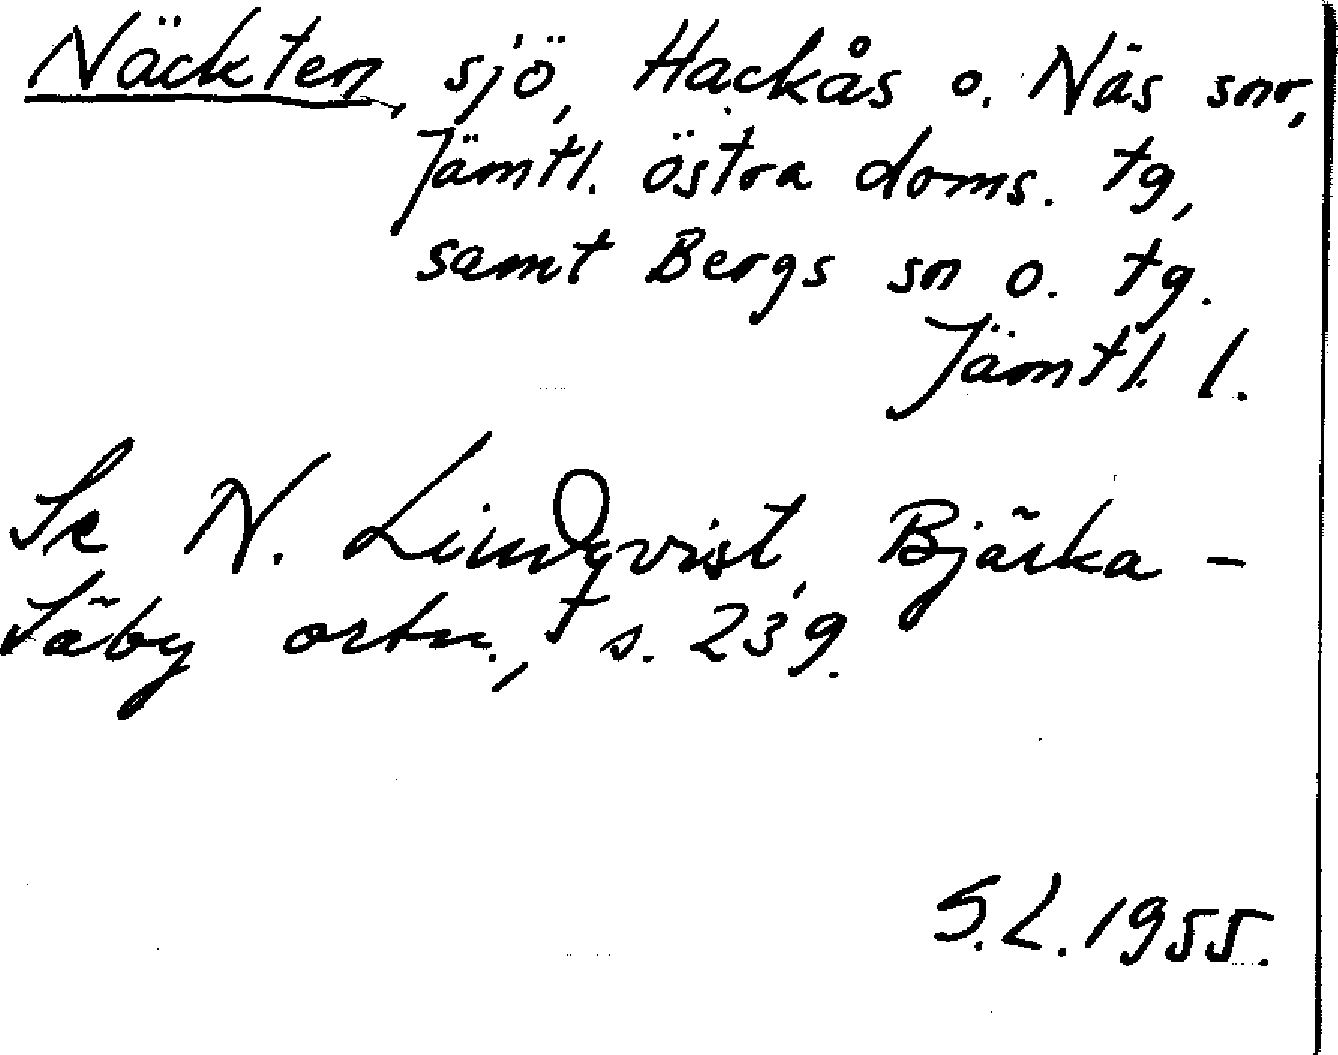 Näckten, sjö, Hackås o. Näs snr,
Jämtl. östra doms. tg,
samt Bergs sn o. tg.
Jämtl. l.
Se N. Lindqvist, Bjärka-
Säby ortn., s. 239.
S.L. 1955.